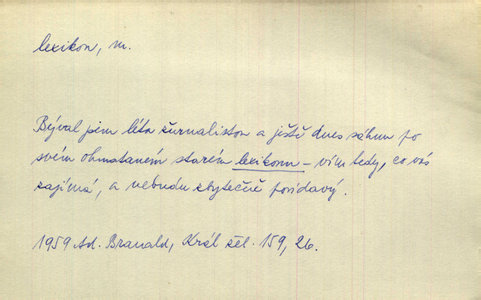 lexikon, m.
Býval jsem léta žurnalistou a ještě dnes sáhnu po
svém ohmataném starém lexikonu – vím tedy, co vás
zajímá, a nebudu zbytečně povídavý.
1959 Ad. Branald, Král žel. 159, 26.